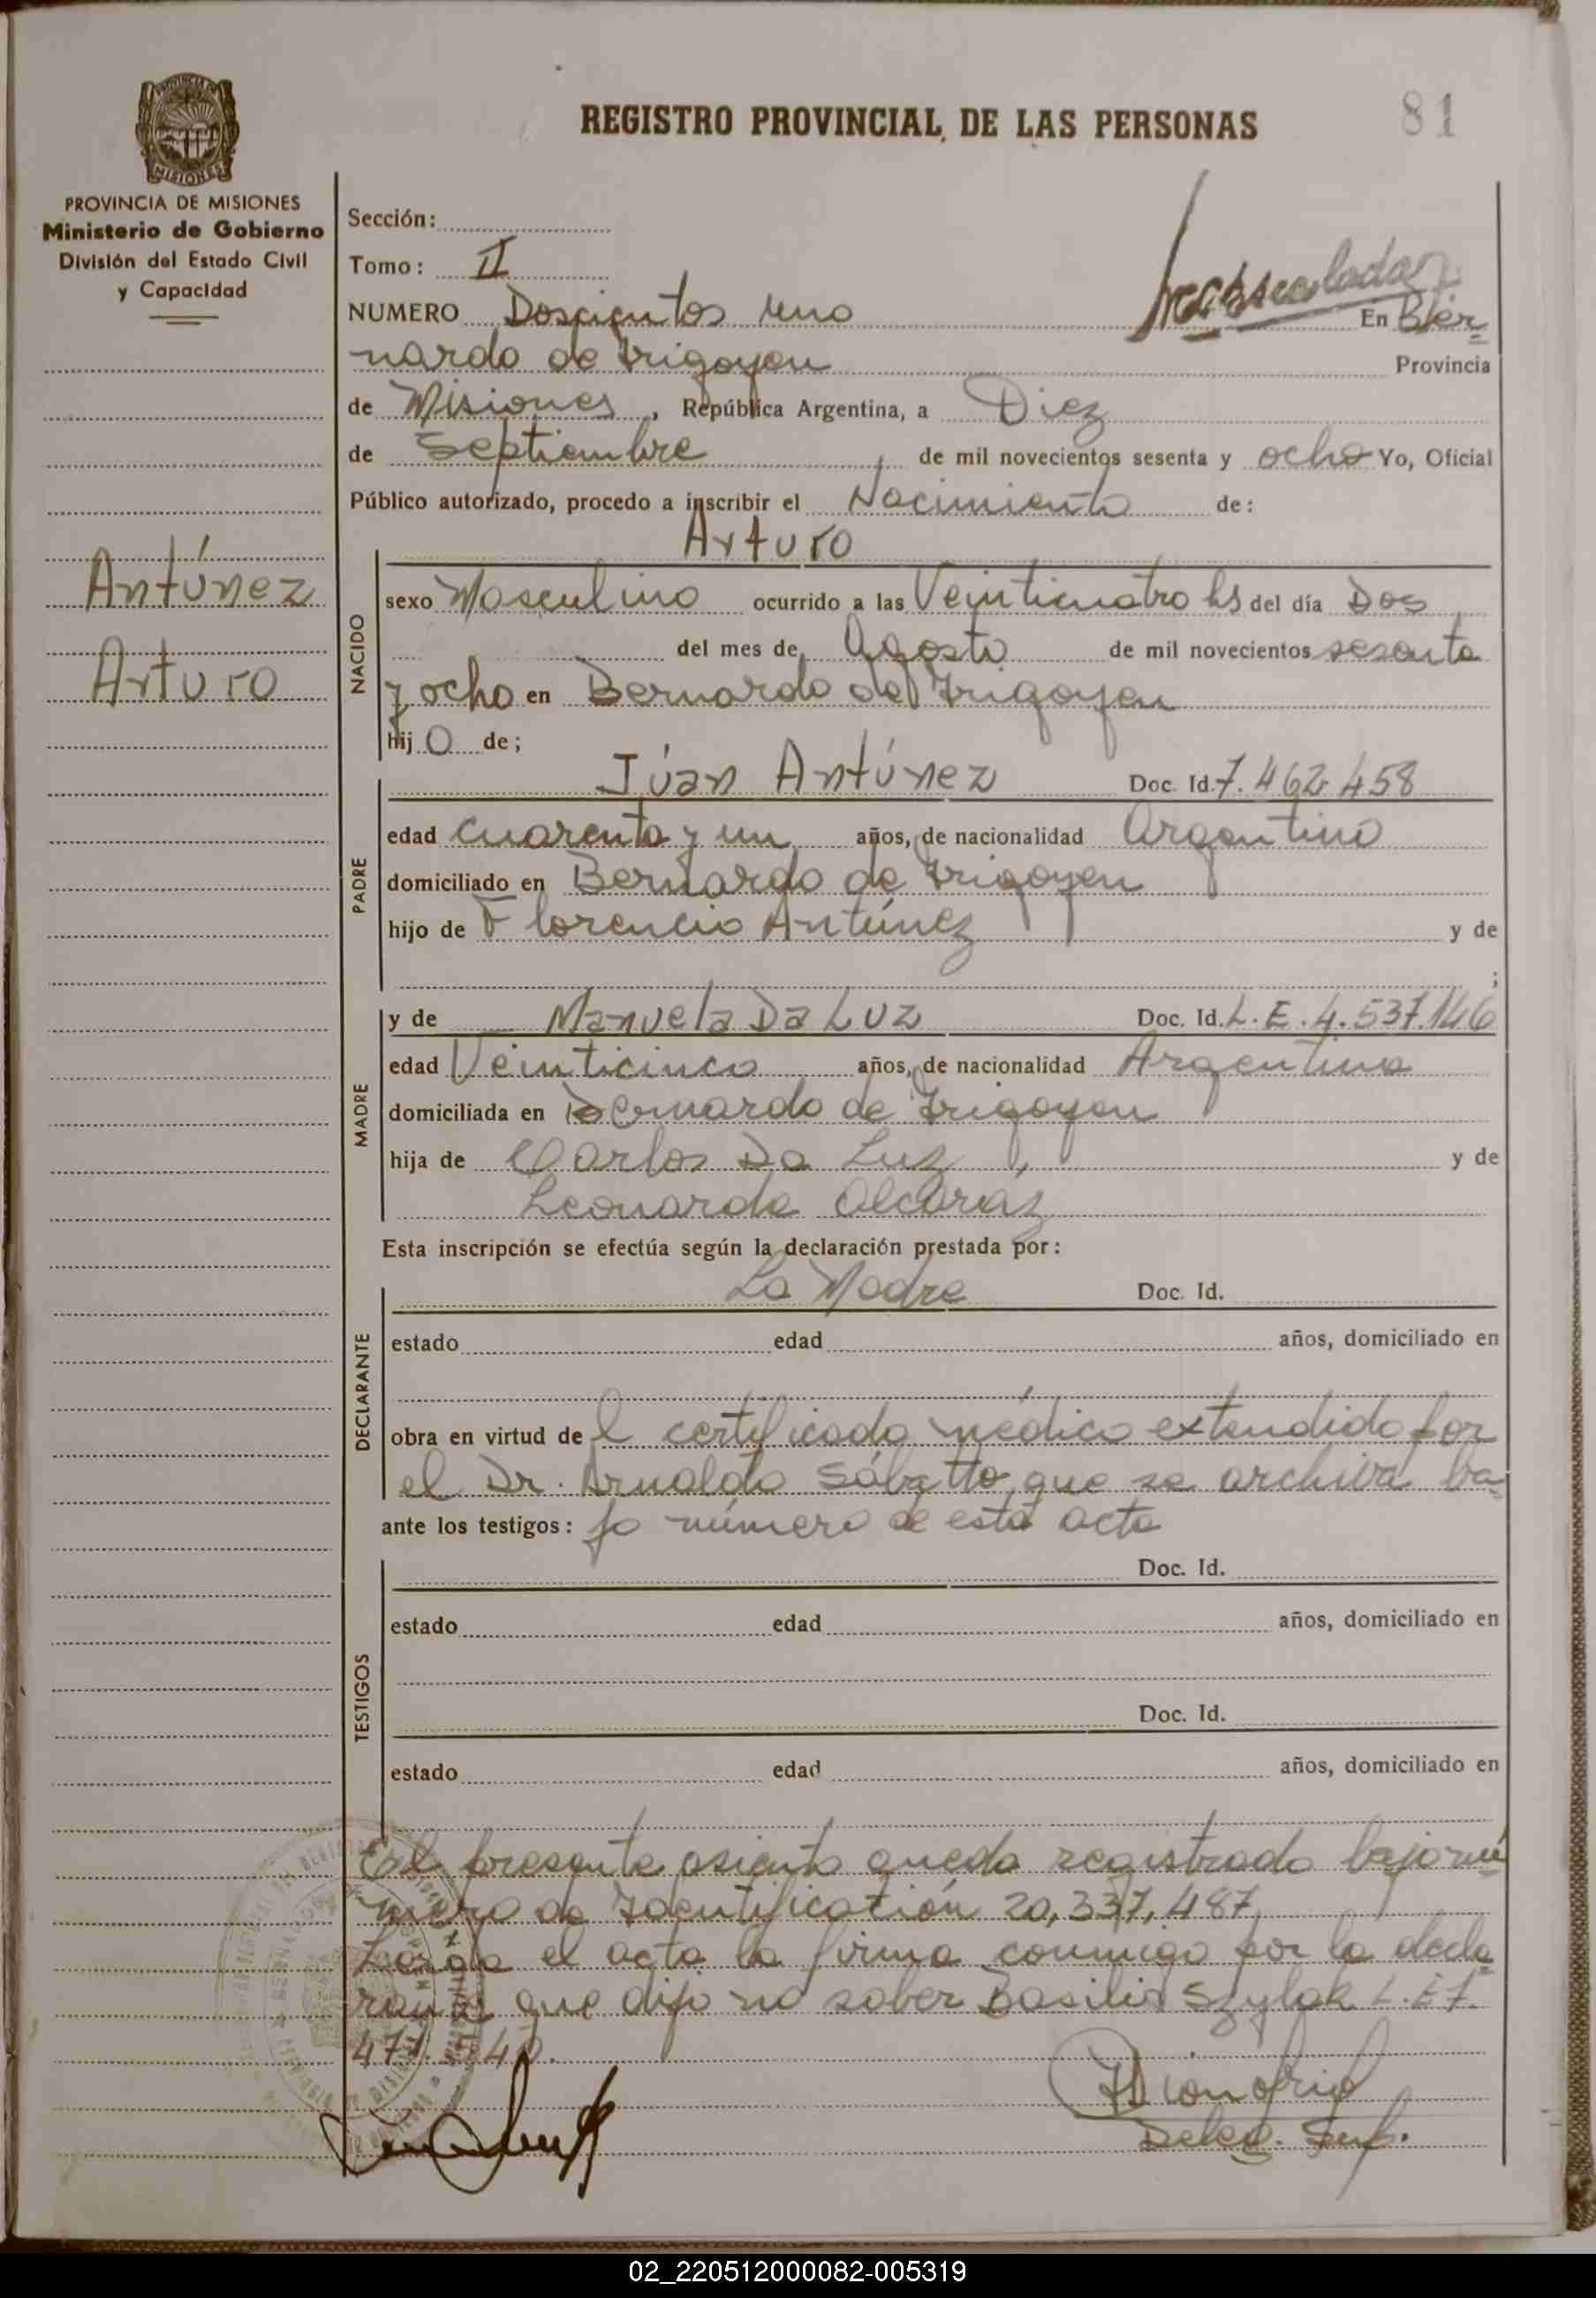 REGISTRO PROVINCIAL DE LAS PERSONAS
81
PROVINCIA DE MISIONES
MISIONES
PROVINCIA DE MISIONES
Ministerio de Gobierno
División del Estado Civil
y Capacidad
Antúnez
Arturo
Sección:
Tomo: II
NUMERO Doscientos uno En Ber
nardo de Irigoyen Provincia
de Misiones, República Argentina, a Diez
de Septiembre, de mil novecientos sesenta y ocho Yo, Oficial
Público autorizado, procedo a inscribir el Nacimiento de:
Arturo
NACIDO
sexo Masculino ocurrido a las Veinticuatro hs del día Dos
del mes de Agosto de mil novecientos sesenta
y ocho en Bernardo de Irigoyen
hijo de;
Júan Antúnez Doc. Id. 7.462.458
PADRE
edad cuarenta y un años, de nacionalidad Argentino
domiciliado en Bernardo de Irigoyen
hijo de Florencio Antúnez y de
;
MADRE
y de Manuela Da Luz Doc. Id. L.E. 4.537.146
edad Veinticinco años, de nacionalidad Argentina
domiciliada en Bernardo de Irigoyen
hija de Carlos Da Luz, y de
Leonarda Alcaráz
Esta inscripción se efectúa según la declaración prestada por:
DECLARANTE
La Madre Doc. Id.
estado edad años, domiciliado en
obra en virtud del certificado médico extendido por
el Dr. Arnaldo Sábatto, que se archiva ba
ante los testigos: jo número de esta acta
TESTIGOS
Doc. Id.
estado edad años, domiciliado en
Doc. Id.
estado edad años, domiciliado en
El presente asiento queda registrado bajo nú
mero de Identificación 20,337,487.
Leida el acta la firma conmigo por la decla
rante que dijo no saber Basilio Szylak L.E 7.
Deleg. Sup.
02_220512000082-005319